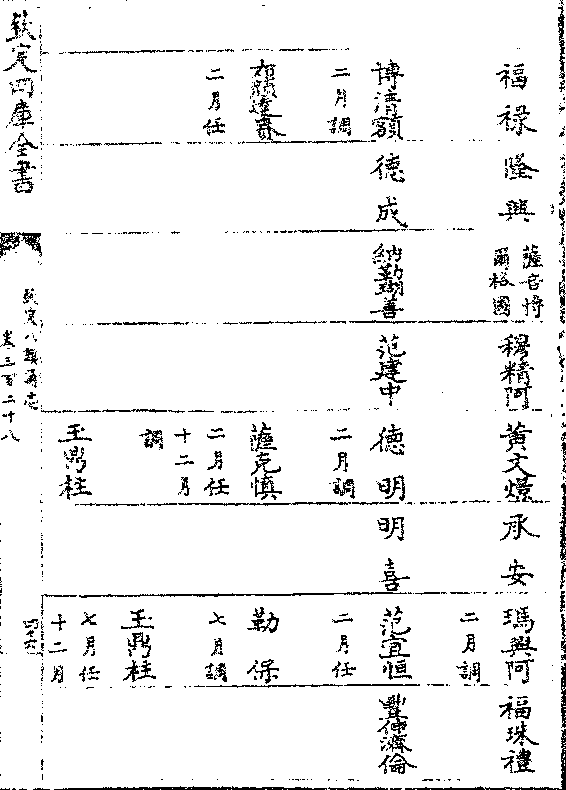 福祿
隆興
薩音將
爾格國
穆精阿
黃文煜
承安
瑪興阿
二月調
福珠禮
博清額
二月調
德成
納勒善
范建中
德明
二月調
明喜
范宜恒
二月任
豐伸濟倫
布顏達賚
二月任
薩克慎
二月任
十二月
調
勒保
七月調
王鼎柱
七月任
十二月
王鼎柱
欽定四庫全書
欽定八旗通志
卷三百二十八